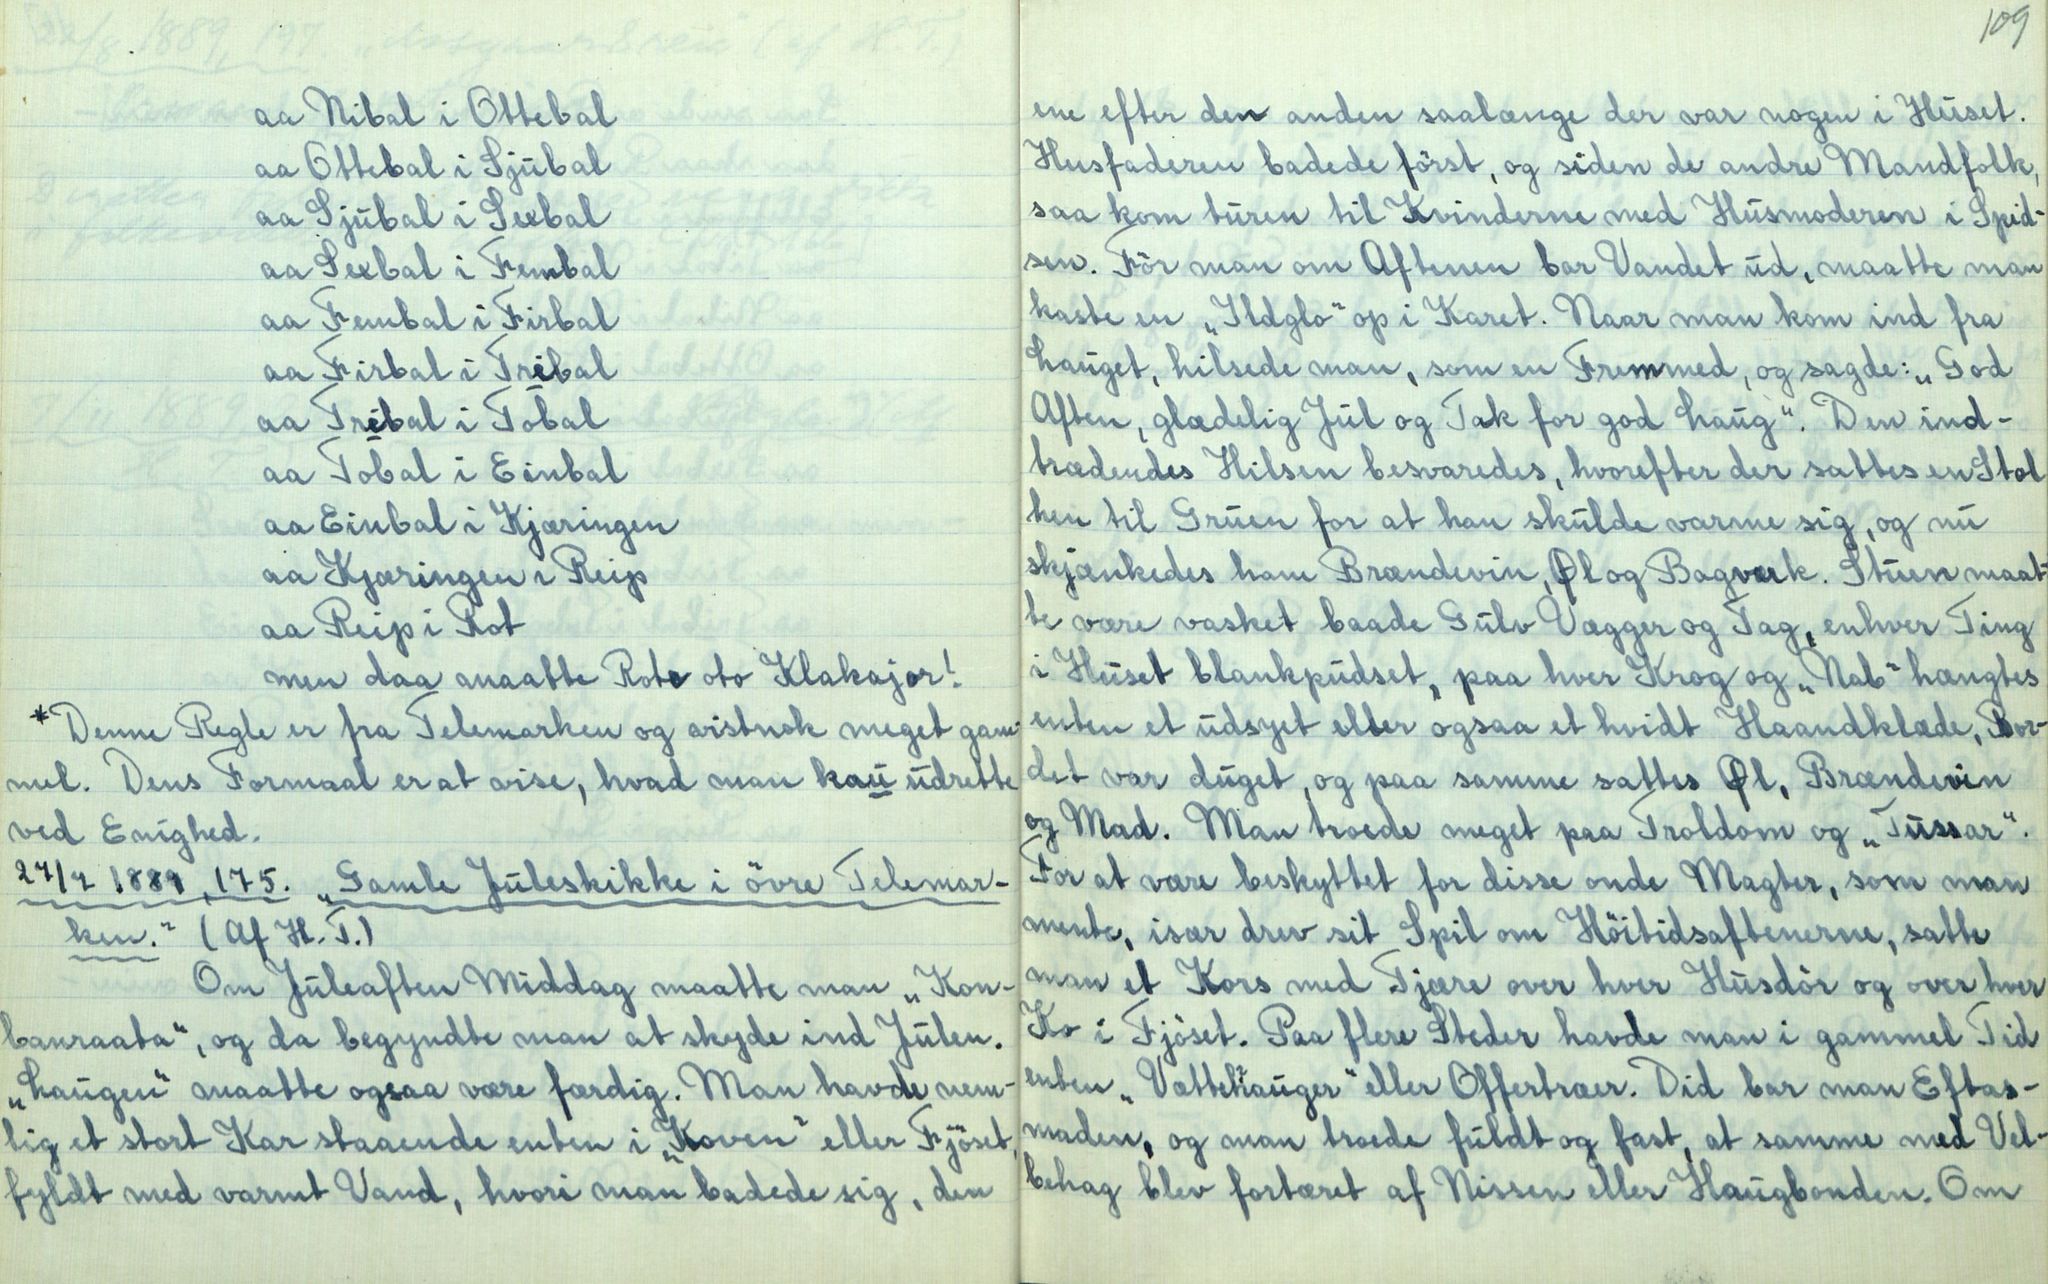 aa Nibal i Ottebal
aa Ottebal i Sjubal
aa Sjubal i Sexbal
aa Sexbal i Fembal
aa Fembal i Firbal
aa Firbal i Trébal
aa Trébal i Tobal
aa Tobal i Einbal
aa Einbal i Kjæringen
aa Kjæringen i Reip
aa Reip i Rot
men daa maatte Rote oto Klakajor!
*Denne Regle er fra Telemarken og vistnok meget gam-
mel. Dens Formaal er at vise, hvad man kau udrette
ved Enighed.
27/7 1889, 175. „Gamle Juleskikke i övre Telemar-
ken." (Af H. T.)
Om Juleaften Middag maatte man „Kon-
banraata", og da begyndte man at skyde ind Julen.
„Laugen" maatte ogsaa være færdig. Man havde nem-
lig et stort Kar staaende enten i „Koven" eller Fjöset,
fyldt med varmt Vand, hvori man badede sig, den
109
ene efter den anden saalænge der var nogen i Huset.
Husfaderen badede först, og siden de andre Mandfolk,
saa kom turen til Kvinderne med Husmoderen i Spid-
sen. För man om Aftenen bar Vandet ud, maatte man
kaste en „Ildglo" op i Karet. Naar man kom ind fra
Lauget, hilsede man, som en Fremmed, og sagde: „God
Aften, glædelig Jul og Tak for god Laug". Den ind-
trædendes Hilsen besvaredes, hvorefter der sattes en Stol
hen til Gruen for at han skulde varme sig, og nu
skjænkedes ham Brændevin, Øl og Bagværk. Stuen maat-
te være vasket baade Gulv Vægger og Tag, enhver Ting
i Huset blankpudset, paa hver Krog og „Nab" hængtes
enten et udsyet eller ogsaa et hvidt Haandklæde, Bor-
det var duget, og paa samme sattes Øl, Brændevin
og Mad. Man troede meget paa Troldom og „Tussar".
For at være beskyttet for disse onde Magter, som man
mente, især drev sit Spil om Höitidsaftenerne, satte
man et Kors med Tjære over hver Husdör og over hver
Ko i Fjöset. Paa flere Steder havde man i gammel Tid
enten „Vættehauger" eller Offertræer. Did bar man Eftas-
maden, og man troede fuldt og fast, at samme med Vel-
behag blev fortæret af Nissen eller Haugbonden. Om